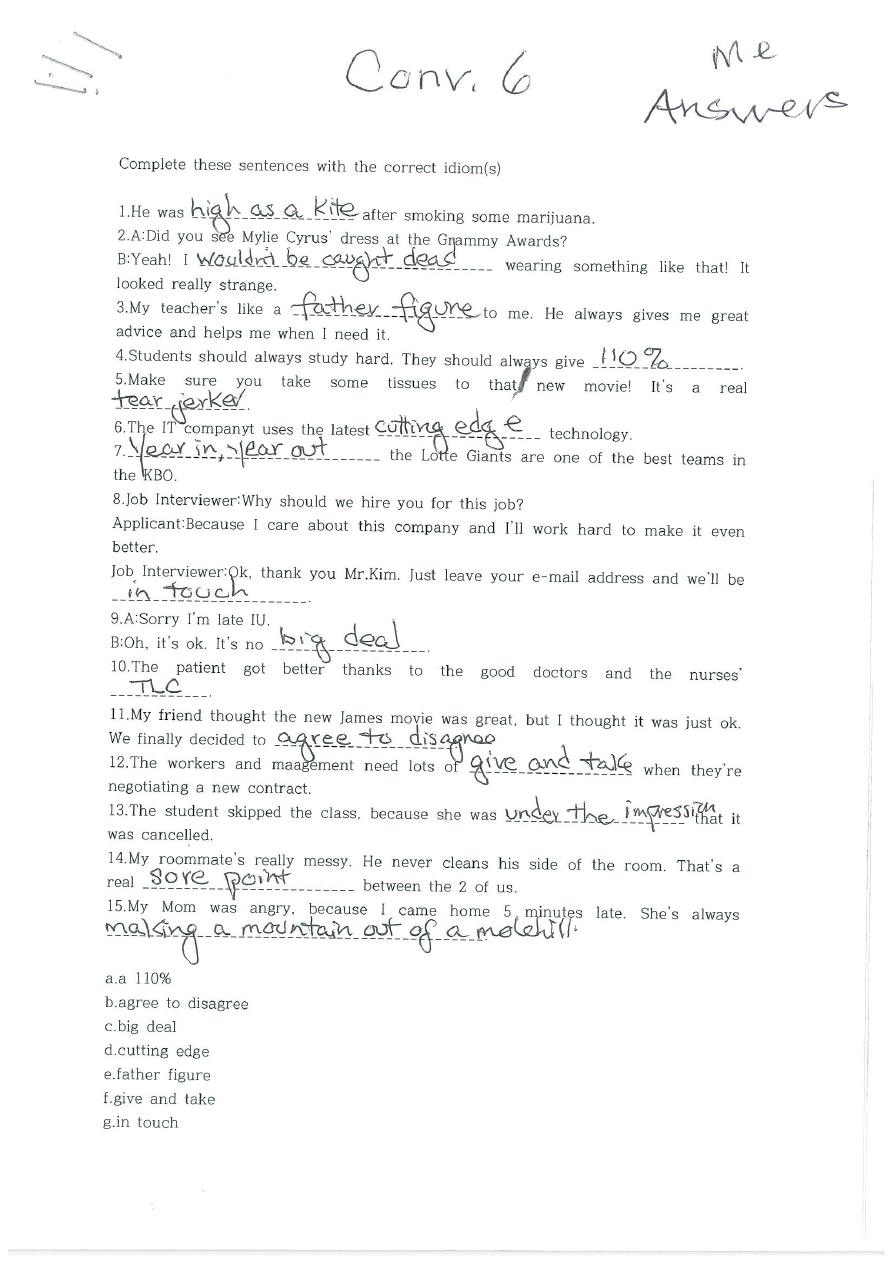 Conv. 6
Me
Answers
Complete these sentences with the correct idiom(s)
1.He was high as a kite after smoking some marijuana.
2.A:Did you see Mylie Cyrus' dress at the Grammy Awards?
B:Yeah! I wouldn't be caught dead wearing something like that! It
looked really strange.
3.My teacher's like a father figure to me. He always gives me great
advice and helps me when I need it.
4.Students should always study hard. They should always give 110%.
5.Make sure you take some tissues to that new movie! It's a real
tear jerker.
6.The IT companyt uses the latest cutting edge technology.
7.Year in, year out the Lotte Giants are one of the best teams in
the KBO.
8.Job Interviewer:Why should we hire you for this job?
Applicant:Because I care about this company and I'll work hard to make it even
better.
Job Interviewer:Ok, thank you Mr.Kim. Just leave your e-mail address and we'll be
in touch.
9.A:Sorry I'm late IU.
B:Oh, it's ok. It's no big deal.
10.The patient got better thanks to the good doctors and the nurses'
TLC.
11.My friend thought the new James movie was great, but I thought it was just ok.
We finally decided to agree to disagree
12.The workers and maagement need lots of give and take when they're
negotiating a new contract.
13.The student skipped the class, because she was under the impression that it
was cancelled.
14.My roommate's really messy. He never cleans his side of the room. That's a
real sore point between the 2 of us.
15.My Mom was angry, because I came home 5 minutes late. She's always
making a mountain out of a molehill.
a.a 110%
b.agree to disagree
c.big deal
d.cutting edge
e.father figure
f.give and take
g.in touch